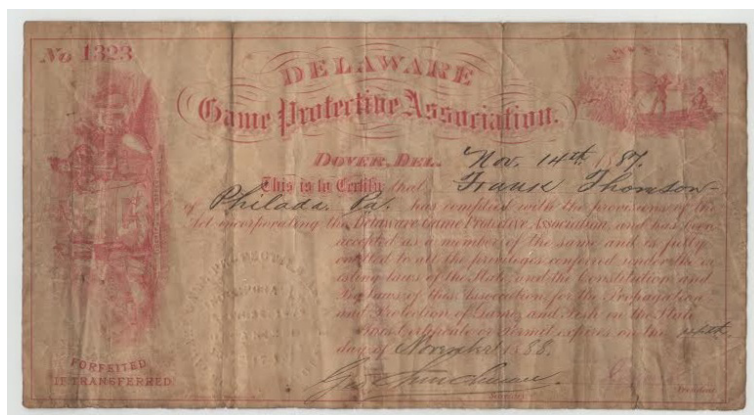 No 1323
DELAWARE
Game Protective Association.
DOVER, DEL. Nov. 14th 1887.
This is to Certify that Frank Thomson
of Philada. Pa. has complied with the provisions of the
Act incorporating the Delaware Game Protective Association, and has been
accepted as a member of the same and is fully
entitled to all the privileges conferred under the ex
isting laws of the State, and the Constitution and
By laws of this Association for the Propagation
and Protection of Game and Fish in the State
Certificate or Permit expires on the
day of November 1888.
FORFEITED
IF TRANSFERRED
President